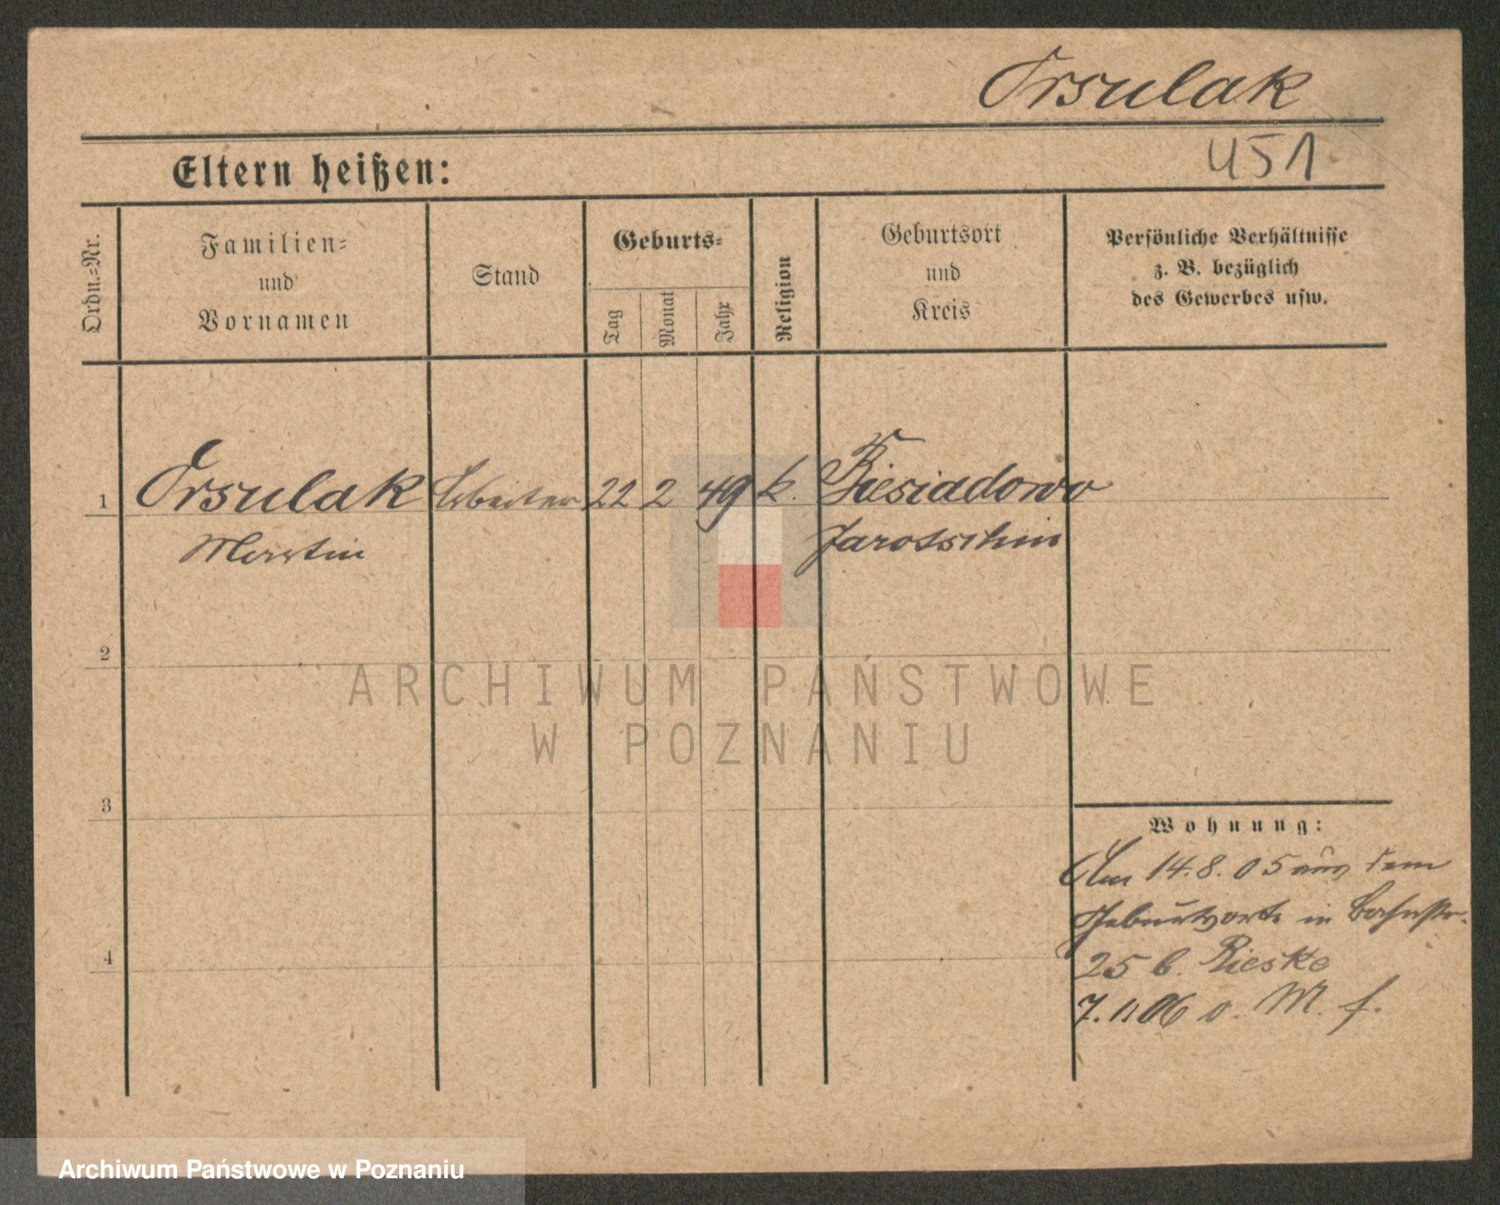 Orsulak
451
Eltern heißen:
Ordn.-Nr.
Familien-
und
Vornamen
Stand
Geburts-
Tag
Monat
Jahr
Religion
Geburtsort
und
Kreis
Persönliche Verhältnisse
z. B. bezüglich
des Gewerbes usw.
1 Orsulak Arbeiter 22 2 49 k. Biesiadowo
Martin Jarotschin
2
ARCHIWUM PAŃSTWOWE
W POZNANIU
3
Wohnung:
Am 14.8.05 aus dem
Geburtsorte in Bahnstr.
4
25 b. Rieske
7.1.06 o. M. f.
Archiwum Państwowe w Poznaniu